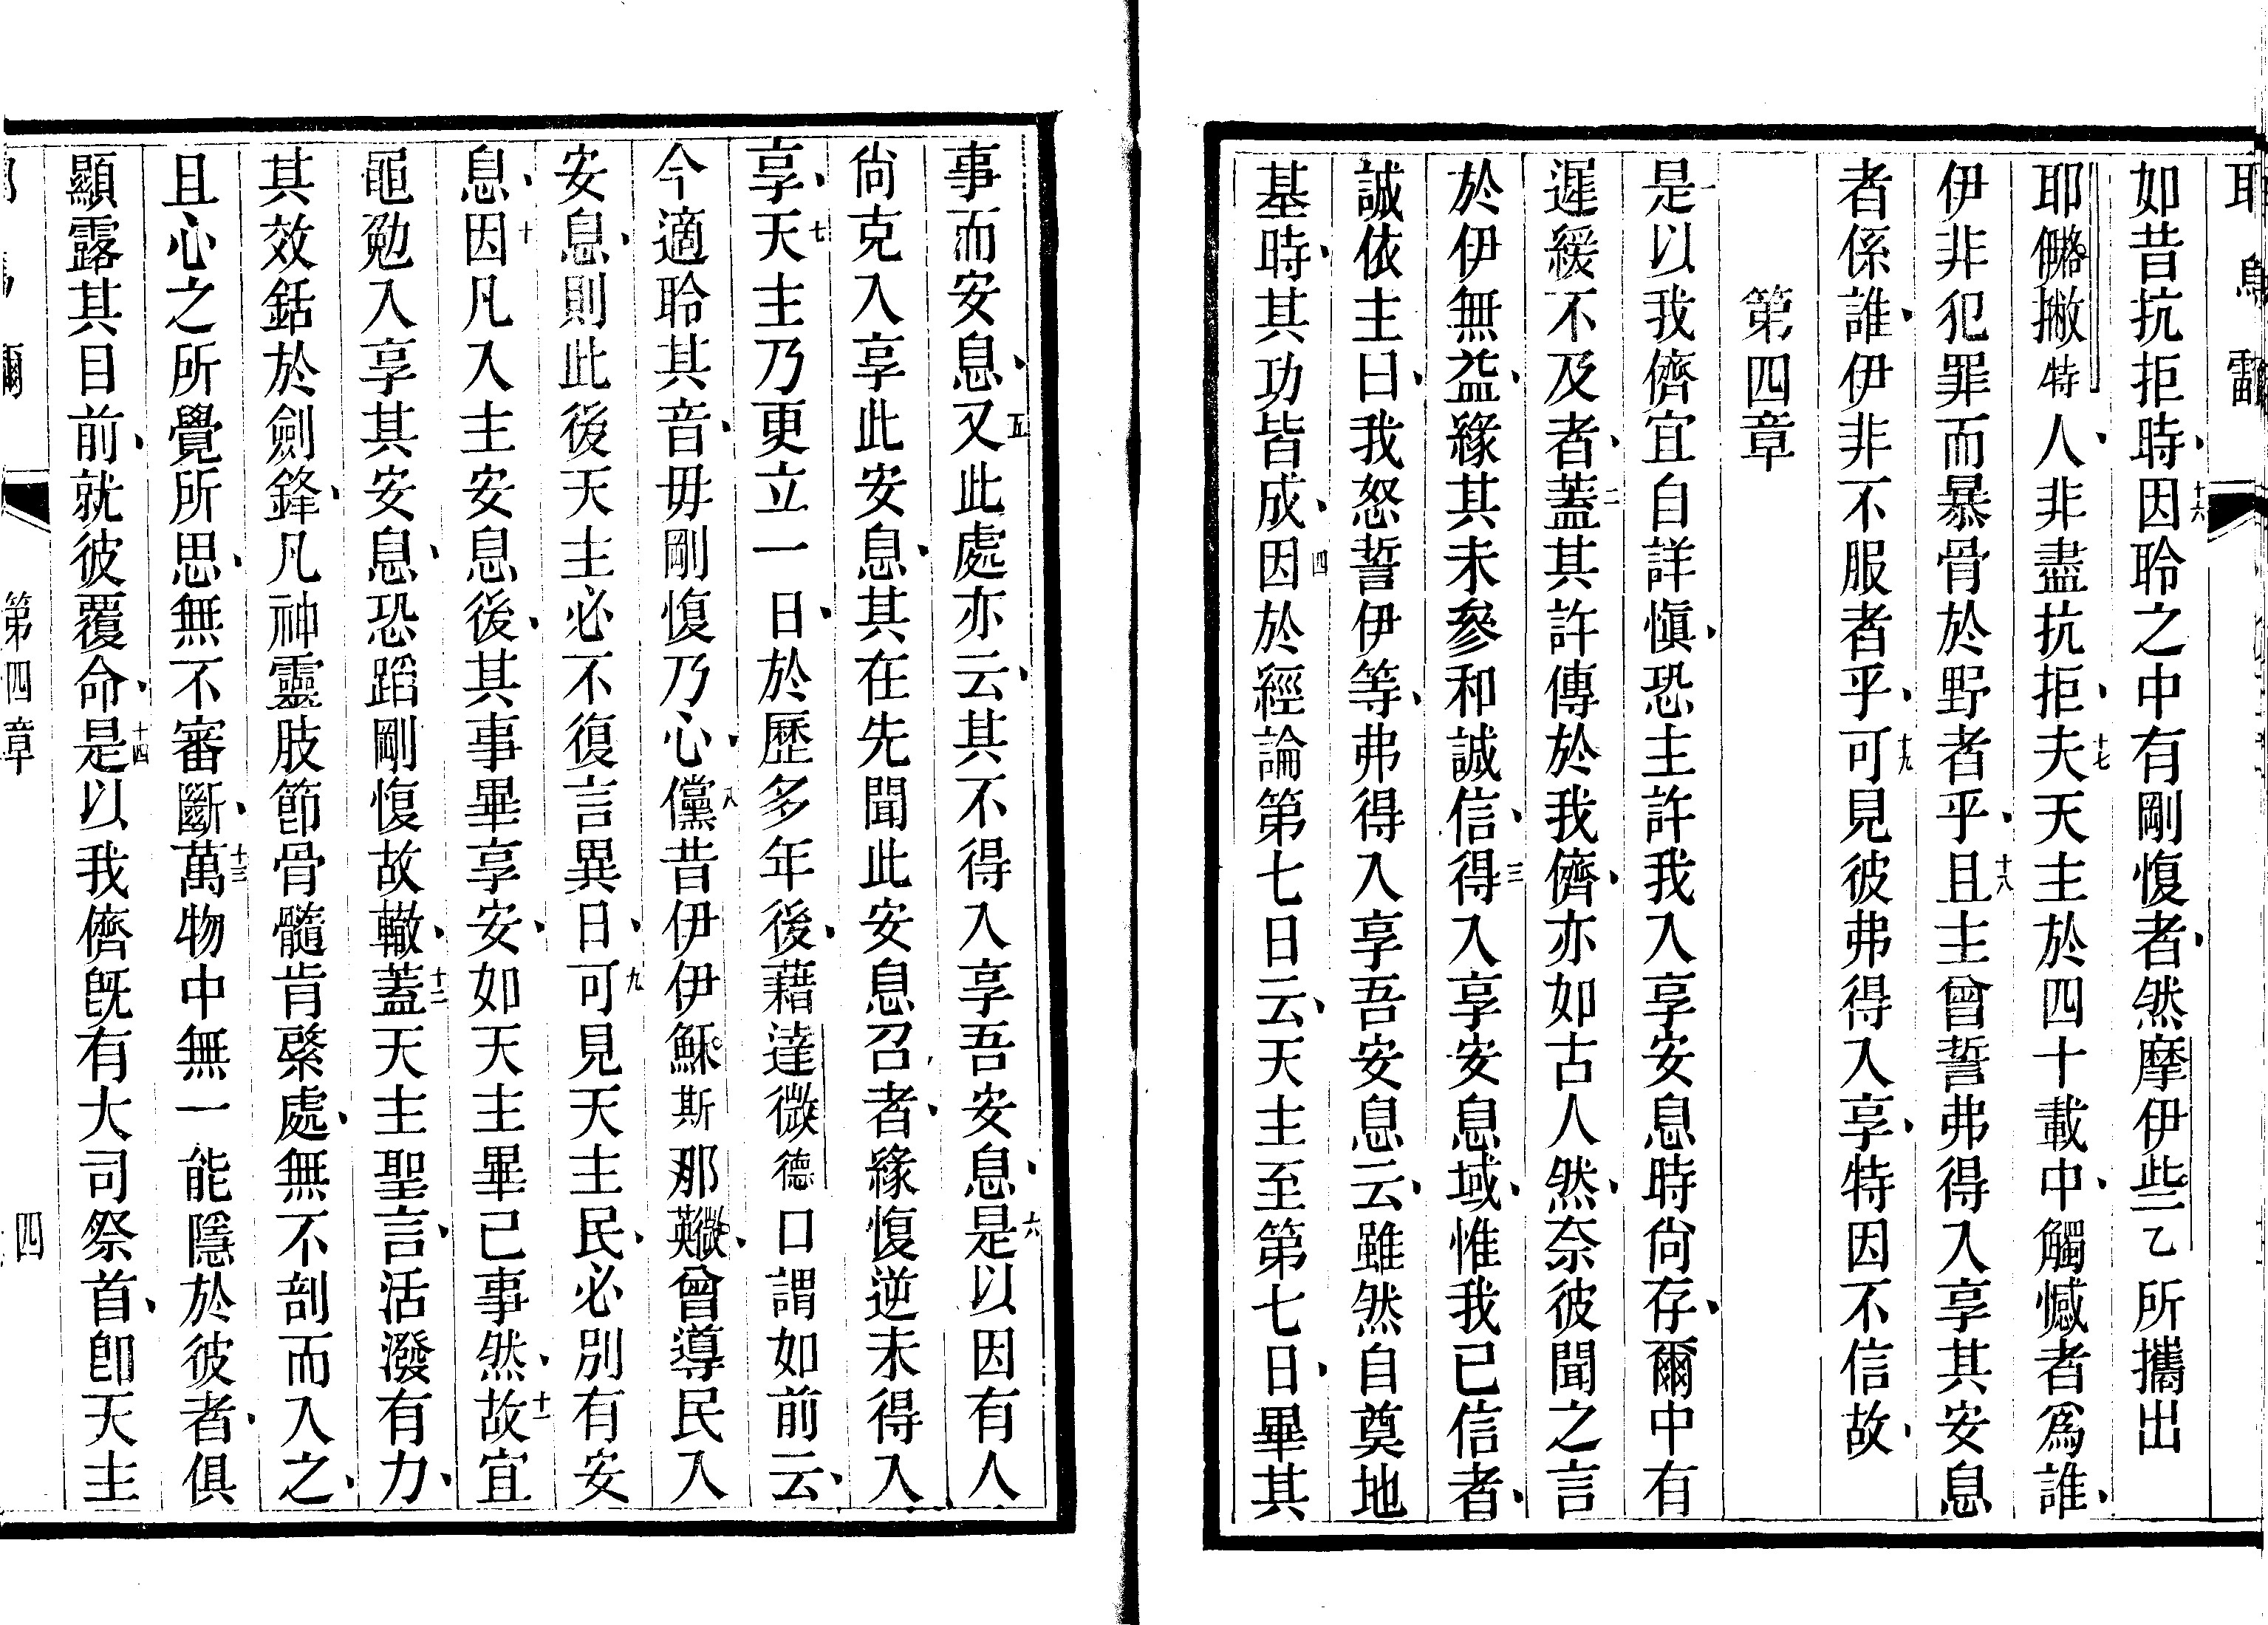 如昔抗拒時、十六因聆之中有剛愎者、然摩伊些乙所攜出
耶撇特人、非盡抗拒、十七夫天主於四十載中、觸憾者爲誰、
伊非犯罪而暴骨於野者乎、十八且主曾誓弗得入享其安息
者係誰、伊非不服者乎、十九可見彼弗得入享、特因不信故、
第四章
一是以我儕宜自詳愼、恐主許我入享安息時尙存、爾中有
遲緩不及者、二蓋其許傳於我儕、亦如古人然、奈彼聞之言
於伊無益、緣其未參和誠信、三得入享安息域、惟我已信者、
誠依主曰、我怒誓伊等、弗得入享吾安息云、雖然自奠地
基時、其功皆成、四因於經論第七日云、天主至第七日、畢其
事而安息、五又此處亦云、其不得入享吾安息、六是以因有人
尙克入享此安息、其在先聞此安息召者、緣愎逆未得入
享、七天主乃更立一日、於歷多年後、藉達微德口謂如前云、
今適聆其音、毋剛愎乃心、八儻昔伊伊穌斯那曾導民入
安息、則此後天主必不復言異日、九可見天主民、必別有安
息、十因凡入主安息後、其事畢享安、如天主畢己事然、十一故宜
黽勉入享其安息、恐蹈剛愎故轍、十二蓋天主聖言、活潑有力、
其效銛於劍鋒、凡神靈肢節骨髓肯綮處、無不剖而入之、
且心之所覺所思、無不審斷、十三萬物中無一能隱於彼者、俱
顯露其目前、就彼覆命、十四是以我儕旣有大司祭首、卽天主
第四章 四